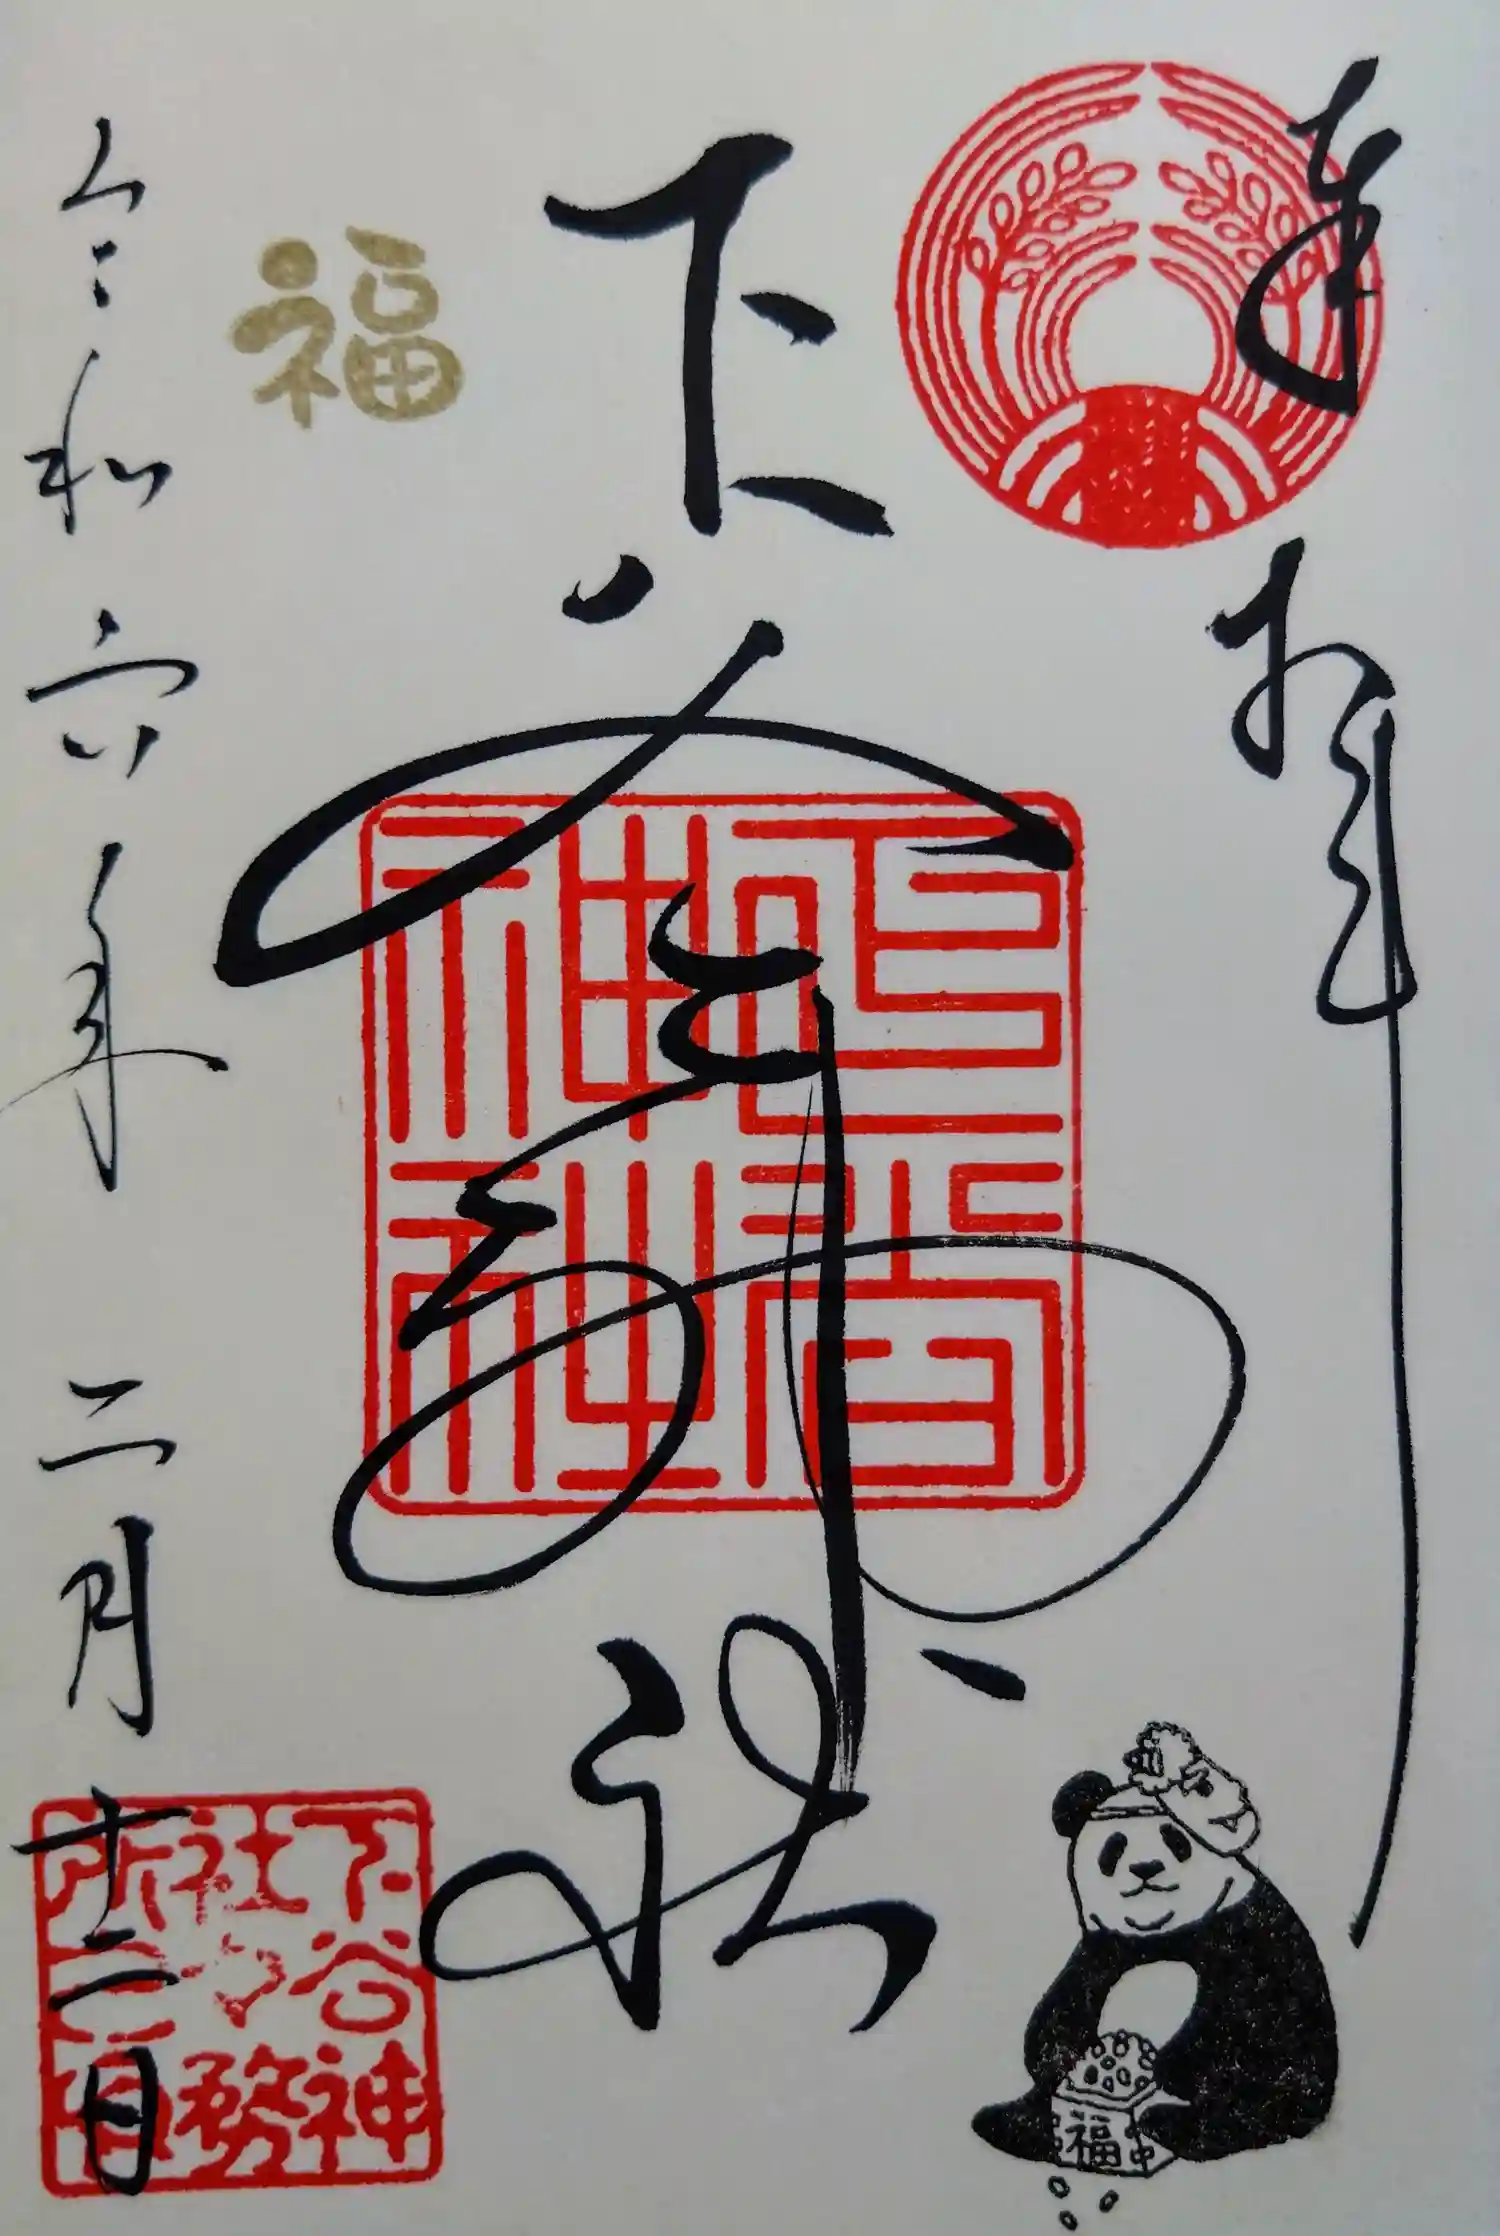 奉拝
下谷神社
下谷神社
福
令和六年二月十二日
下谷神社々務所之印
福